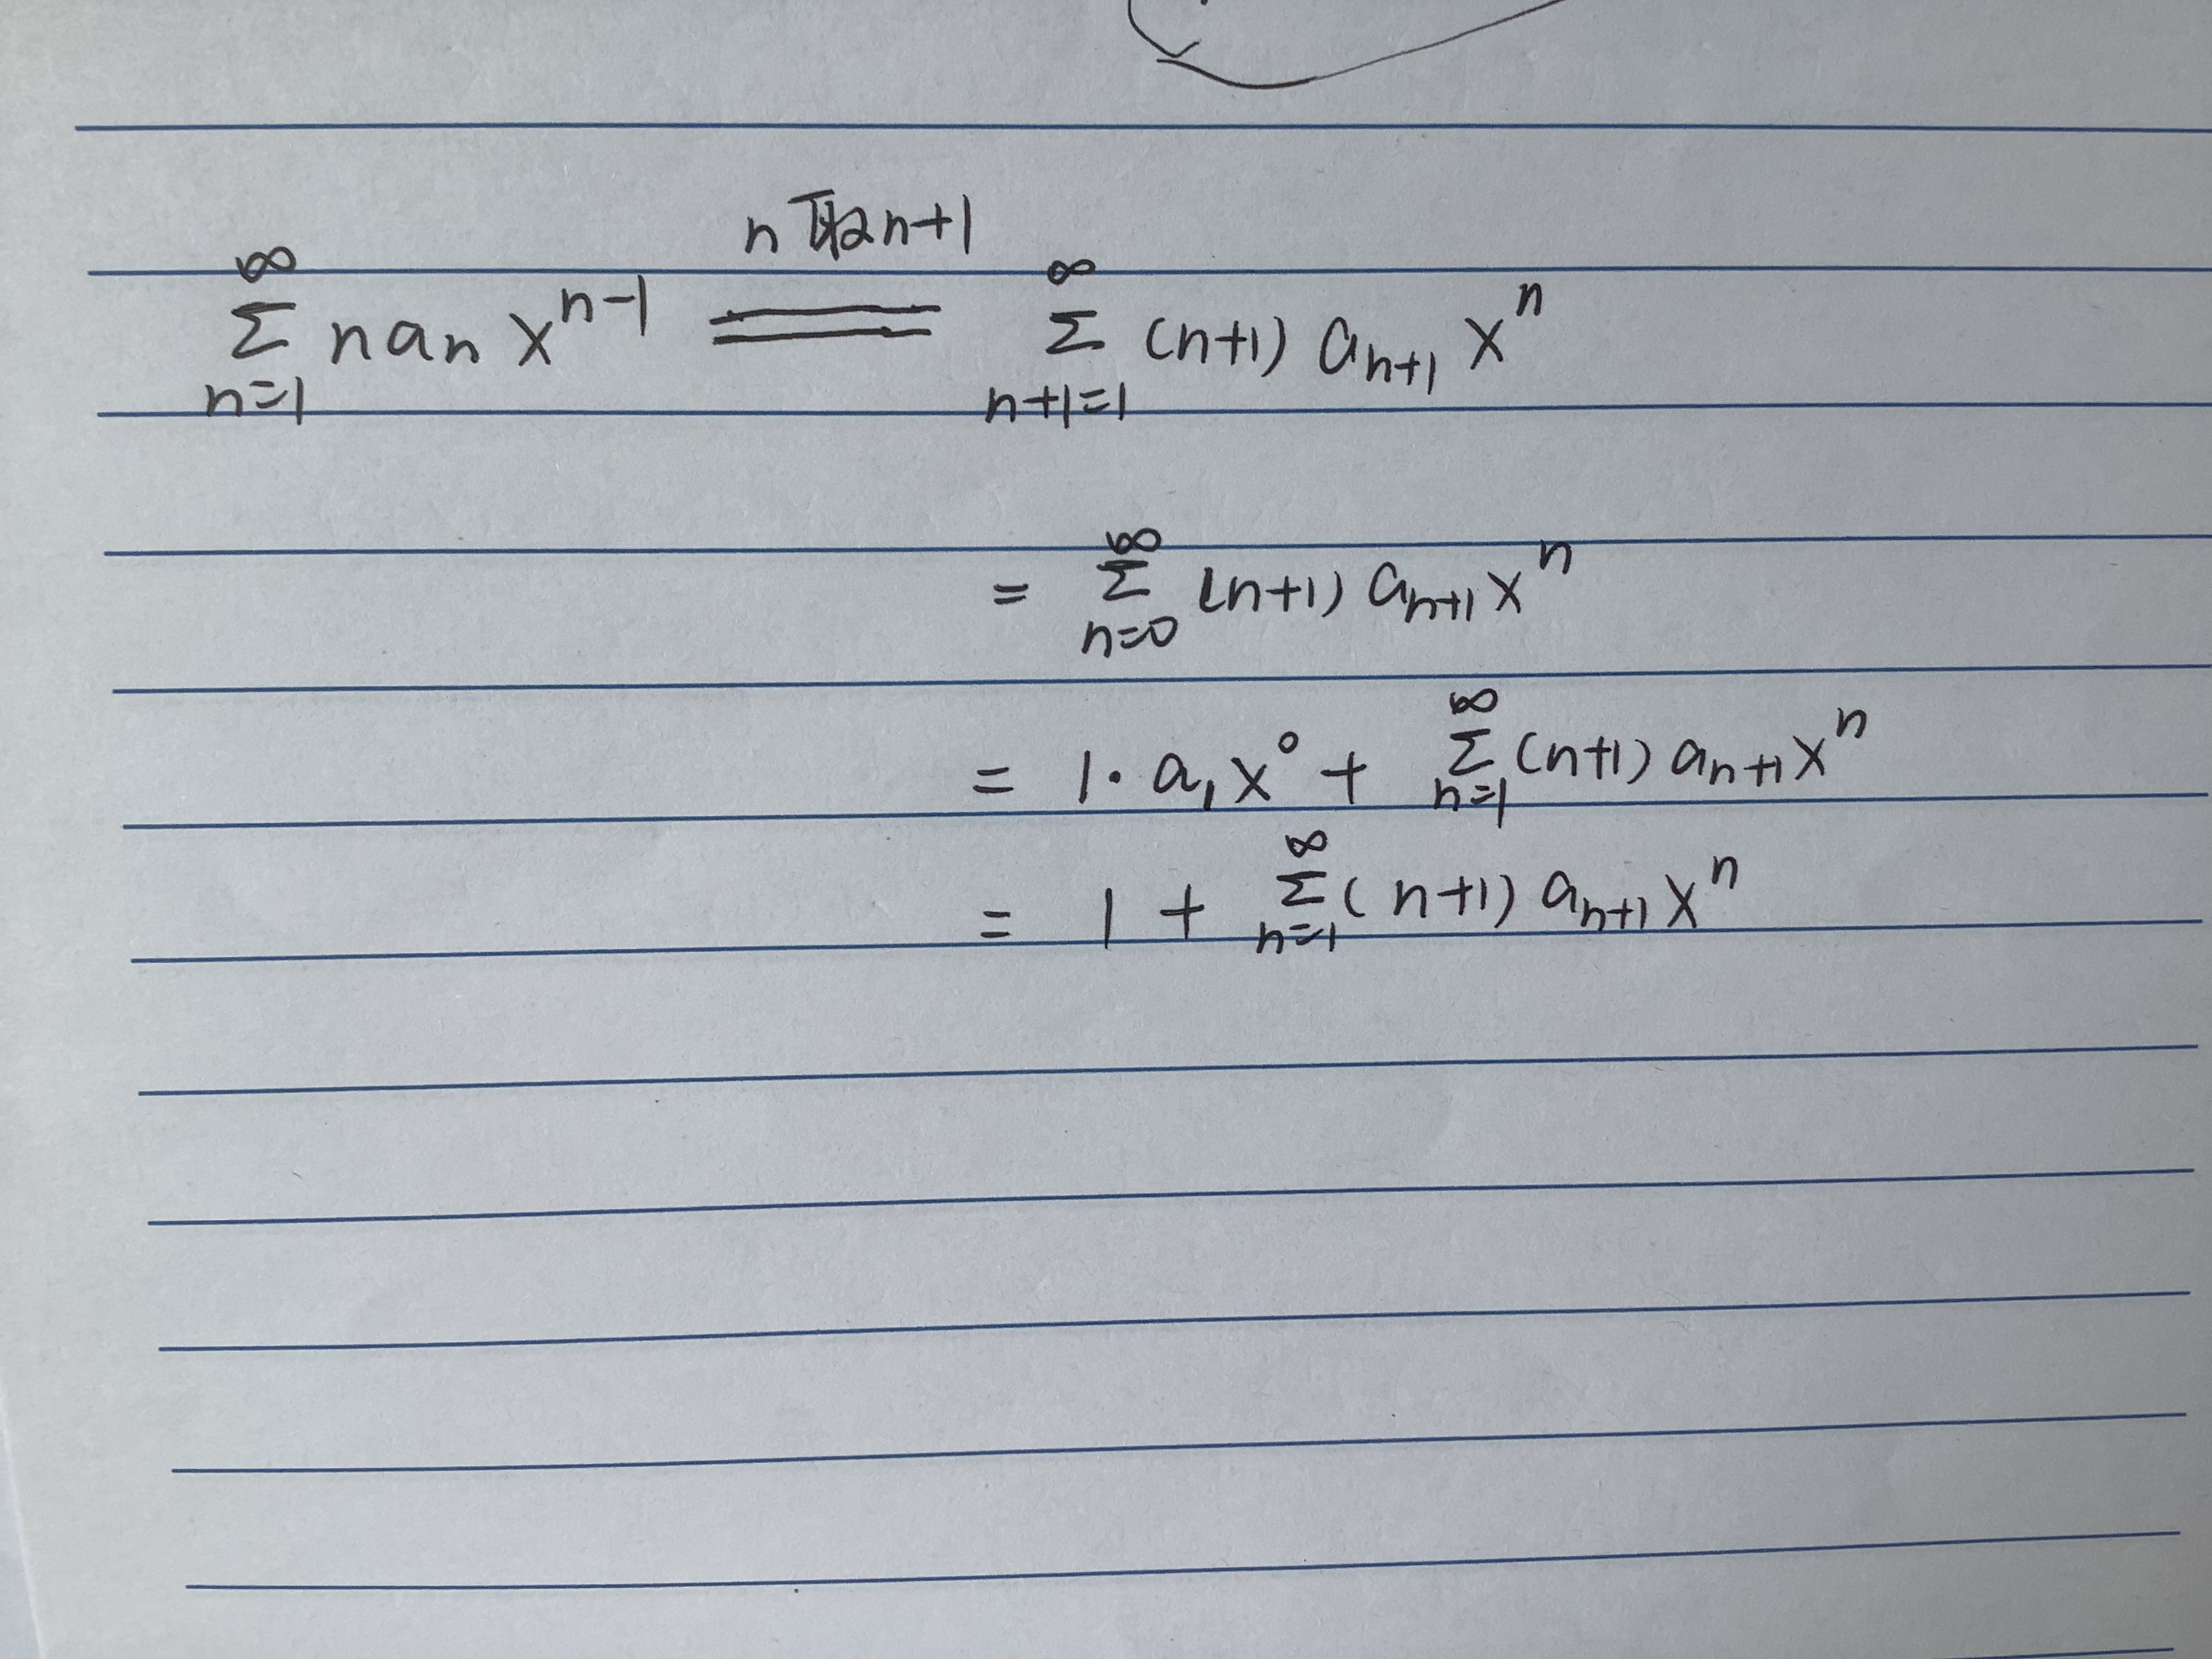 n取n+1
∞ ∑ n=1 n aₙ xⁿ⁻¹ = ∞ ∑ n+1=1 (n+1) aₙ₊₁ xⁿ
= ∞ ∑ n=0 (n+1) aₙ₊₁ xⁿ
= 1· a₁ x⁰ + ∞ ∑ n=1 (n+1) aₙ₊₁ xⁿ
= 1 + ∞ ∑ n=1 (n+1) aₙ₊₁ xⁿ